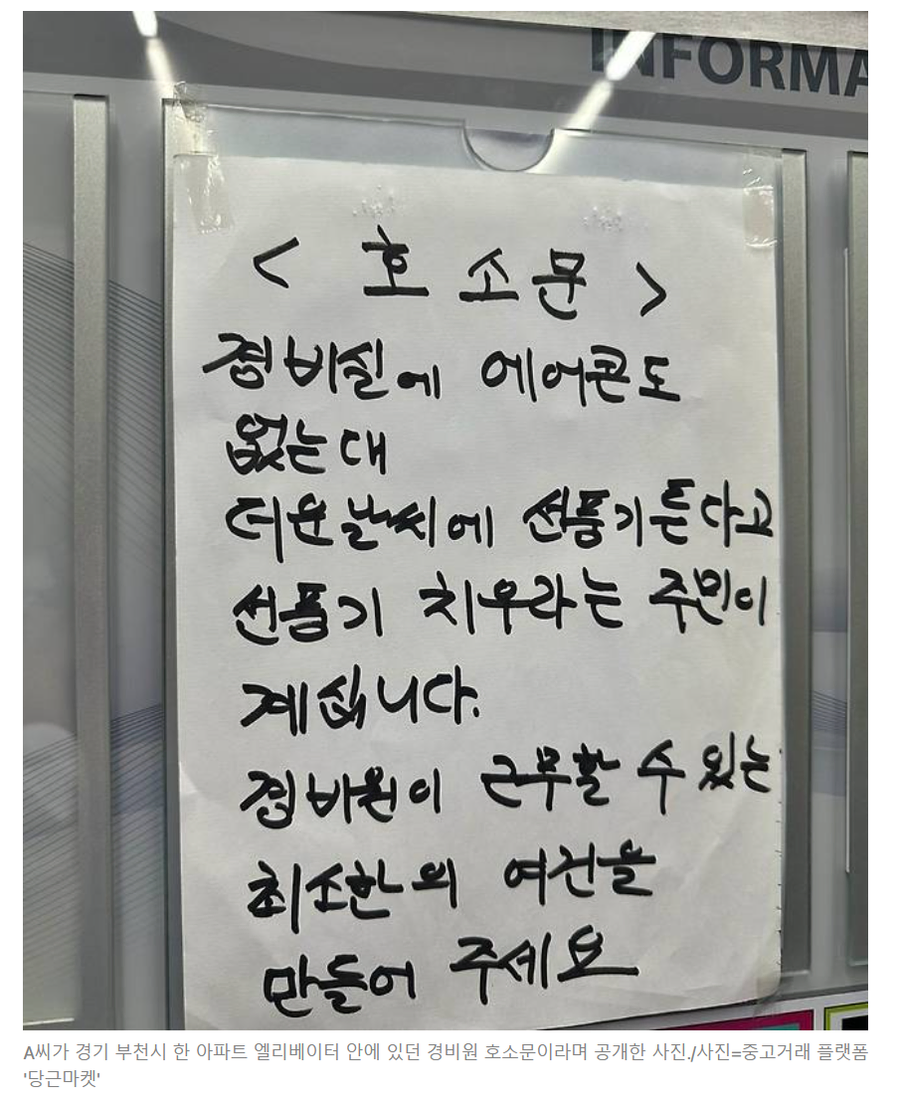 INFORMA
< 호소문 >
경비실에 에어콘도
없는대
더운날씨에 선풍기튼다고
선풍기 치우라는 주민이
계십니다.
경비원이 근무할 수 있는
최소한의 여건을
만들어 주세요
A씨가 경기 부천시 한 아파트 엘리베이터 안에 있던 경비원 호소문이라며 공개한 사진./사진=중고거래 플랫폼
'당근마켓'